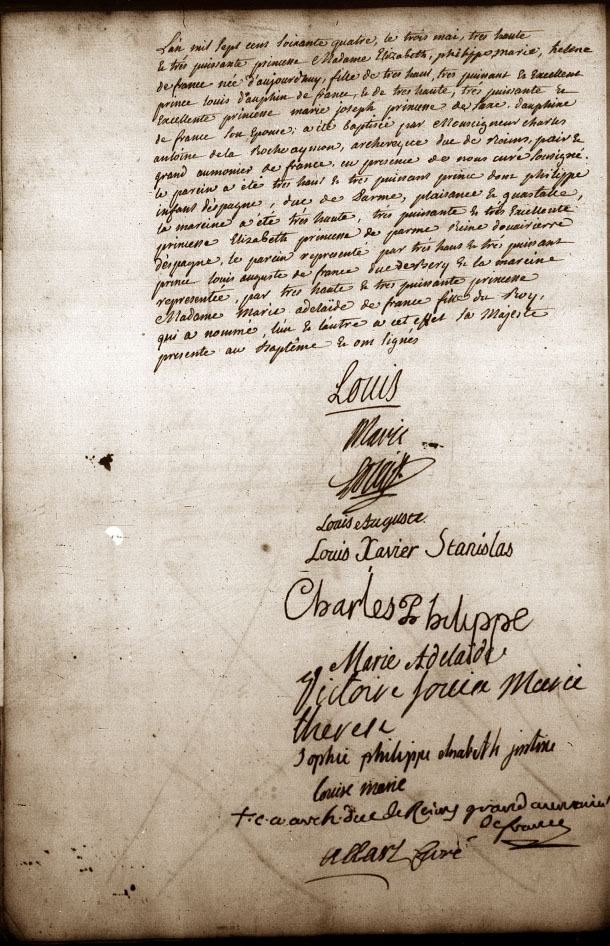 L'an mil sept cens soixante quatre, le trois mai, très haute
& très puissante princesse Madame Elizabeth, philippe marie, helene
de france née d'aujourdhuy, fille de très haut, très puissant & Excellent
prince louis dauphin de france, & de très haute, très puissante &
Excellente princesse marie joseph princesse de saxe, dauphine
de france son Epouse, a été baptisée par Monseigneur charles
antoine dela Rocheaymon, archeveque duc de Reims, pair &
grand aumonier de france, en presence de nous curé soussigné.
le parein a été très haut & très puissant prince dom philippe
infant d'espagne, duc de Parme, plaisance & guastalle,
la mareine a été très haute, très puissante & très Excellente
princesse Elizabeth princesse de parme Reine douairiere
d'espagne, le parein representé par très haut & très puissant
prince louis auguste de france duc de Bery & la mareine
representée, par très haute & très puissante princesse
Madame Marie adelaïde de france fille du Roy,
qui a nommé, l'un & l'autre a cet effet sa Majesté
presente au Baptême & ont signés
Louis
Marie
Louis Auguste
Louis Xavier Stanislas
Charles Philippe
Marie Adelaïde
Victoire Louise Marie
therese
Sophie philippe elisabeth justine
louise marie
+ c. a. arch. duc de Reims grand aumonier
de france
allart Curé